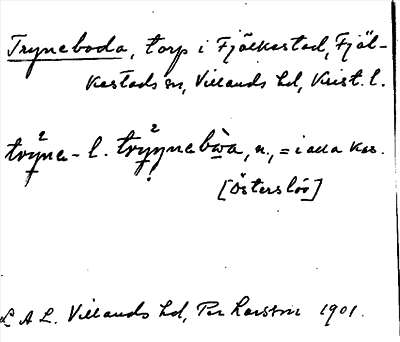 Tryneboda, torp i Fjälkestad, Fjäl-
kestads sn, Villands hd, Krist. l.
trÿne- l. trÿynebẁa, n., = i alla kas.
[Österslöv]
L A L. Villands hd, Per Larson 1901.